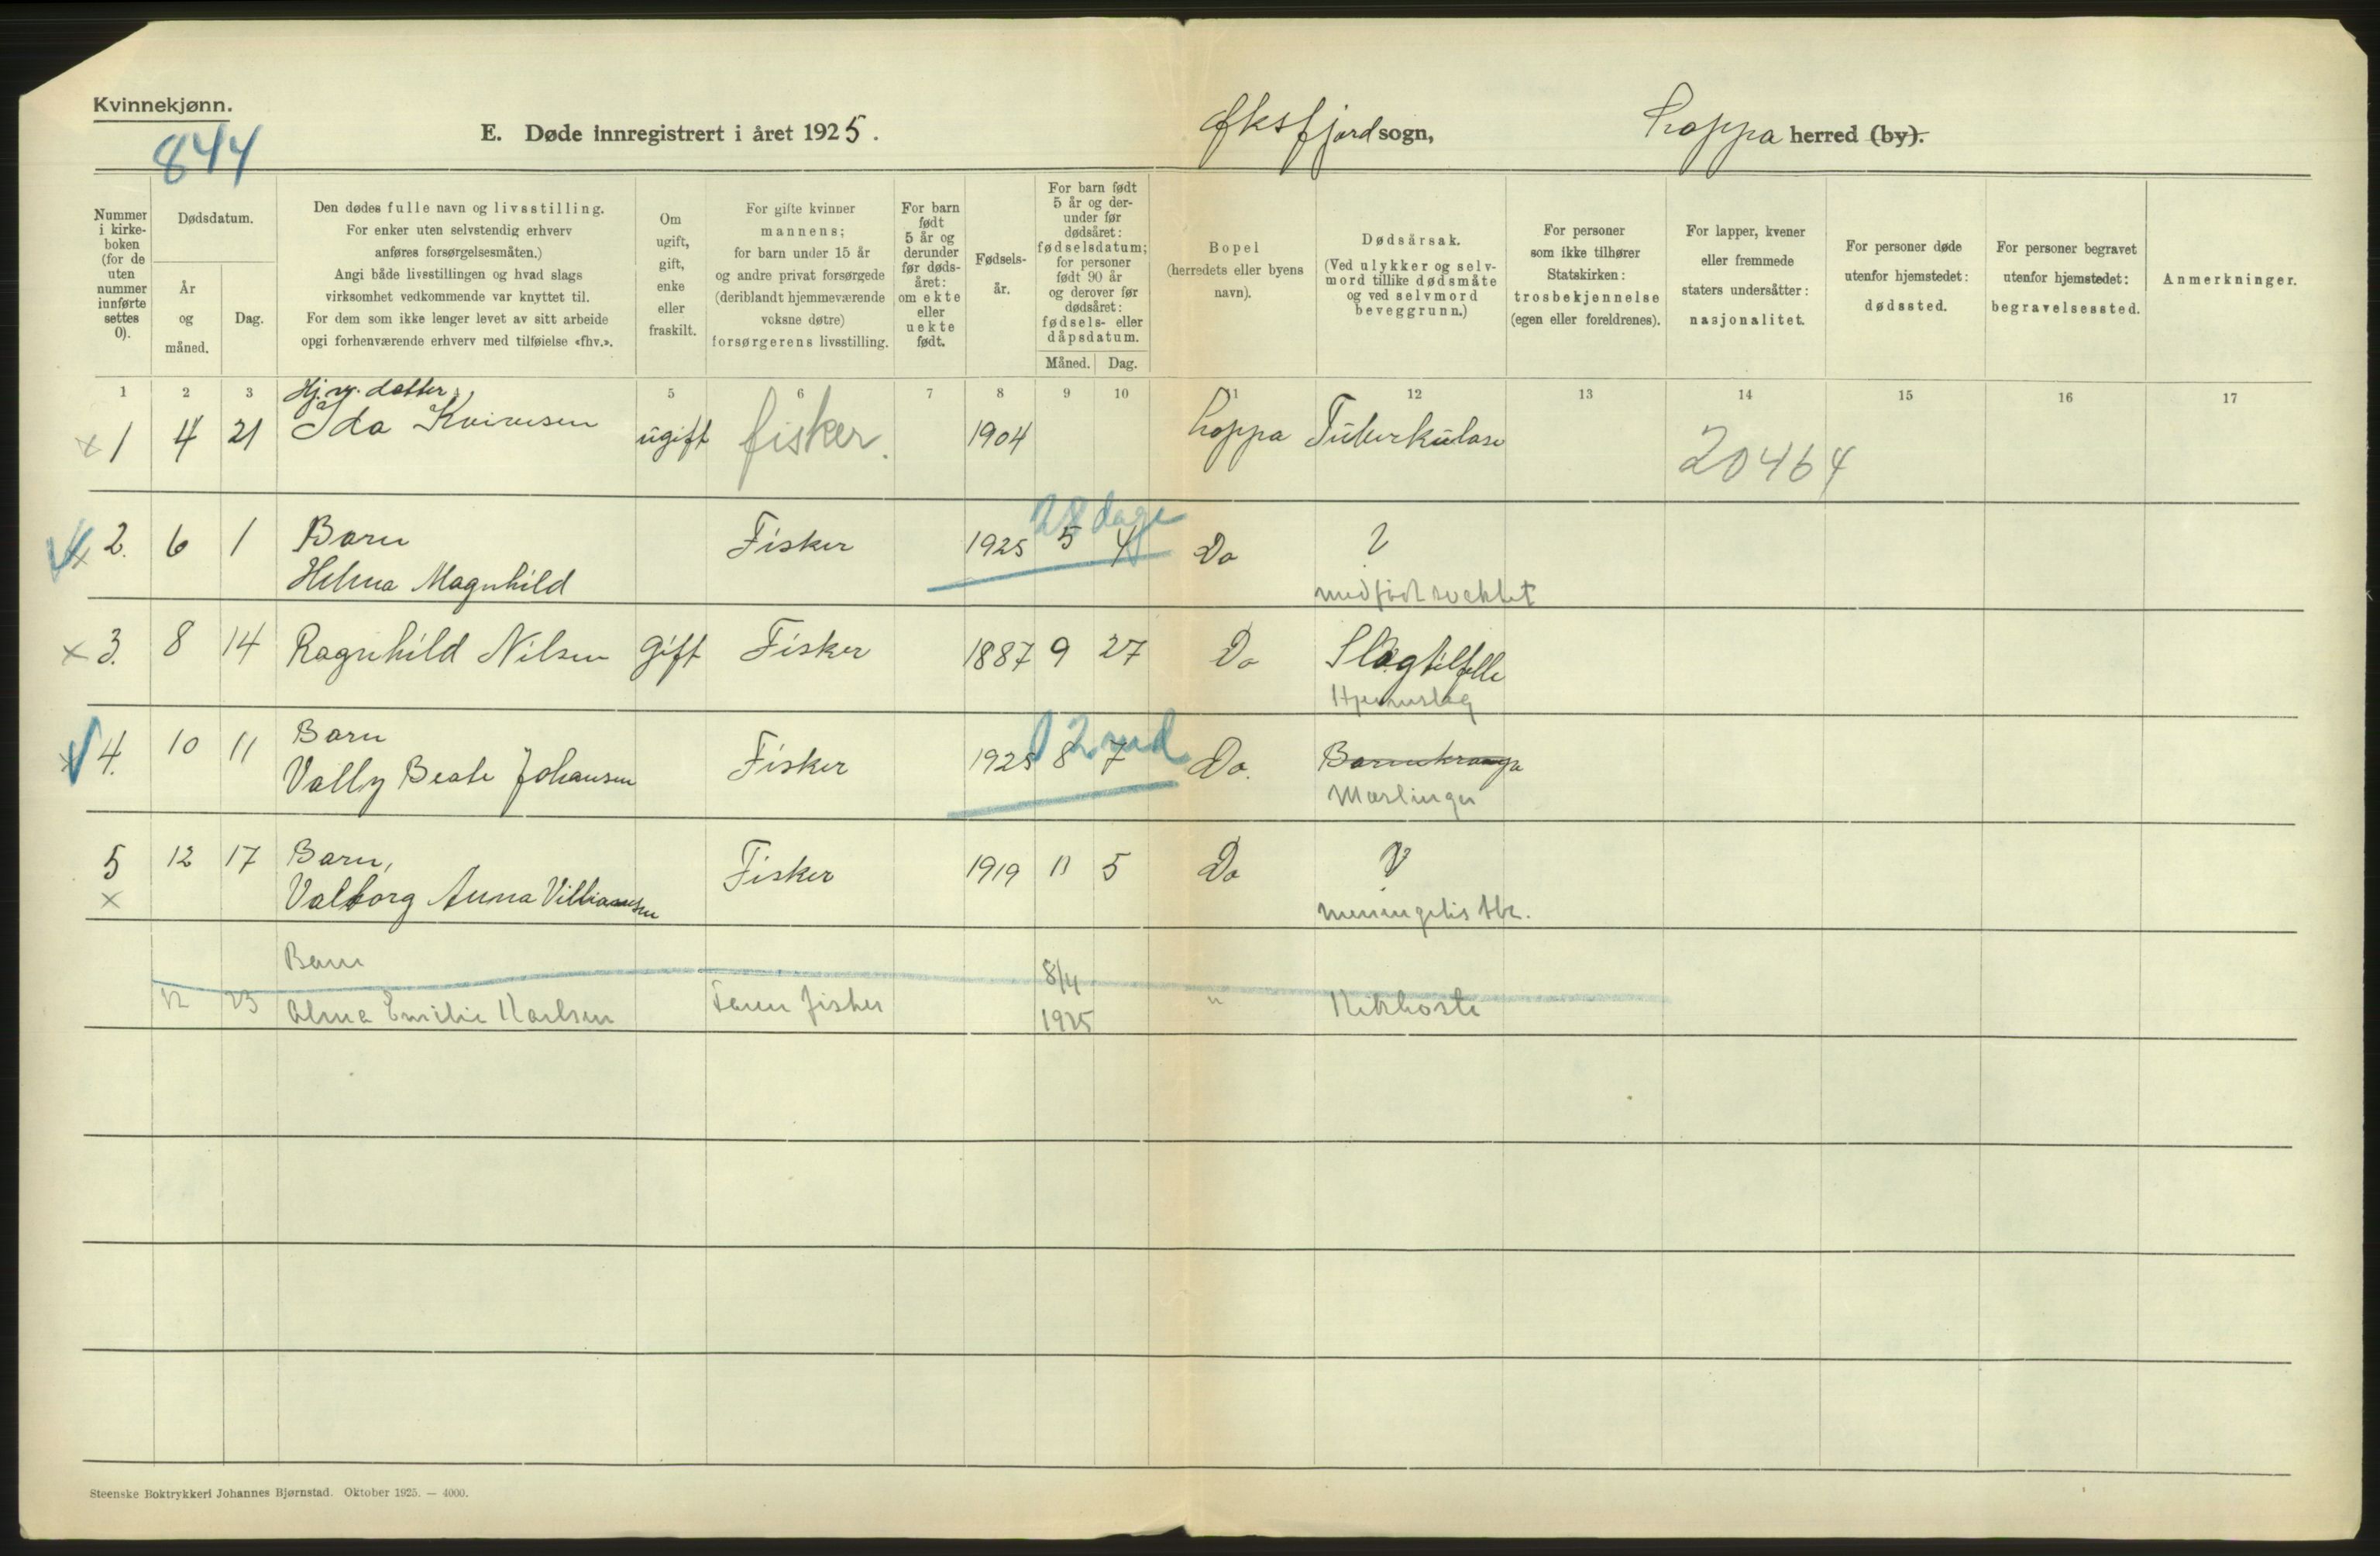 Kvinnekjønn.
844
E. Døde innregistrert i året 1925.
Øksfjord sogn,
Loppa herred (by).
Nummer i kirkeboken (for de uten nummer innførte settes 0).
Dødsdatum.
År og måned.
Dag.
Den dødes fulle navn og livsstilling.
For enker uten selvstendig erhverv
anføres forsørgelsesmåten.)
Angi både livsstillingen og hvad slags
virksomhet vedkommende var knyttet til.
For dem som ikke lenger levet av sitt arbeide
opgi forhenværende erhverv med tilføielse «fhv.».
Om ugift, gift, enke eller fraskilt.
For gifte kvinner
mannens;
for barn under 15 år
og andre privat forsørgede
(deriblandt hjemmeværende
voksne døtre)
forsørgerens livsstilling.
For barn født 5 år og derunder før dødsåret: om ekte eller uekte født.
Fødselsår.
For barn født 5 år og derunder før dødsåret: fødselsdatum; for personer født 90 år og derover før dødsåret: fødsels- eller dåpsdatum.
Måned. Dag.
Bopel
(herredets eller byens
navn).
Dødsårsak.
(Ved ulykker og selv-
mord tillike dødsmåte
og ved selvmord
beveggrunn.)
For personer
som ikke tilhører
Statskirken:
trosbekjennelse
(egen eller foreldrenes).
For lapper, kvener
eller fremmede
staters undersåtter:
nasjonalitet.
For personer døde
utenfor hjemstedet:
dødssted.
For personer begravet
utenfor hjemstedet:
begravelsessted.
Anmerkninger.
1 2 3 5 6 7 8 9 10 11 12 13 14 15 16 17
Hj. v. datter
× 1 4 21 Ida Kvivesen ugift fisker. 1904 Loppa Tuberkulose 20464
28 dage
× 2. 6 1 Barn Fisker 1925 5 4 Do ?
Helma Magnhild medfødt svakhet
× 3. 8 14 Ragnhild Nilsen Gift Fisker 1887 9 27 Do Slagtilfelle
Hjerneslag
2 md
4. 10 11 Barn Fisker 1925 8 7 Do. Barnekrampe
Vally Beate Johansen Mæslinger
5 12 17 Barn, Fisker 1919 11 5 Do ?
× Valborg Anna Villiamsen meningitis tbc.
Barn 8/4
12 23 Alma Emilie Karlsen fisker 1925 " Kikhoste
Steenske Boktrykkeri Johannes Bjørnstad. Oktober 1925. — 4000.